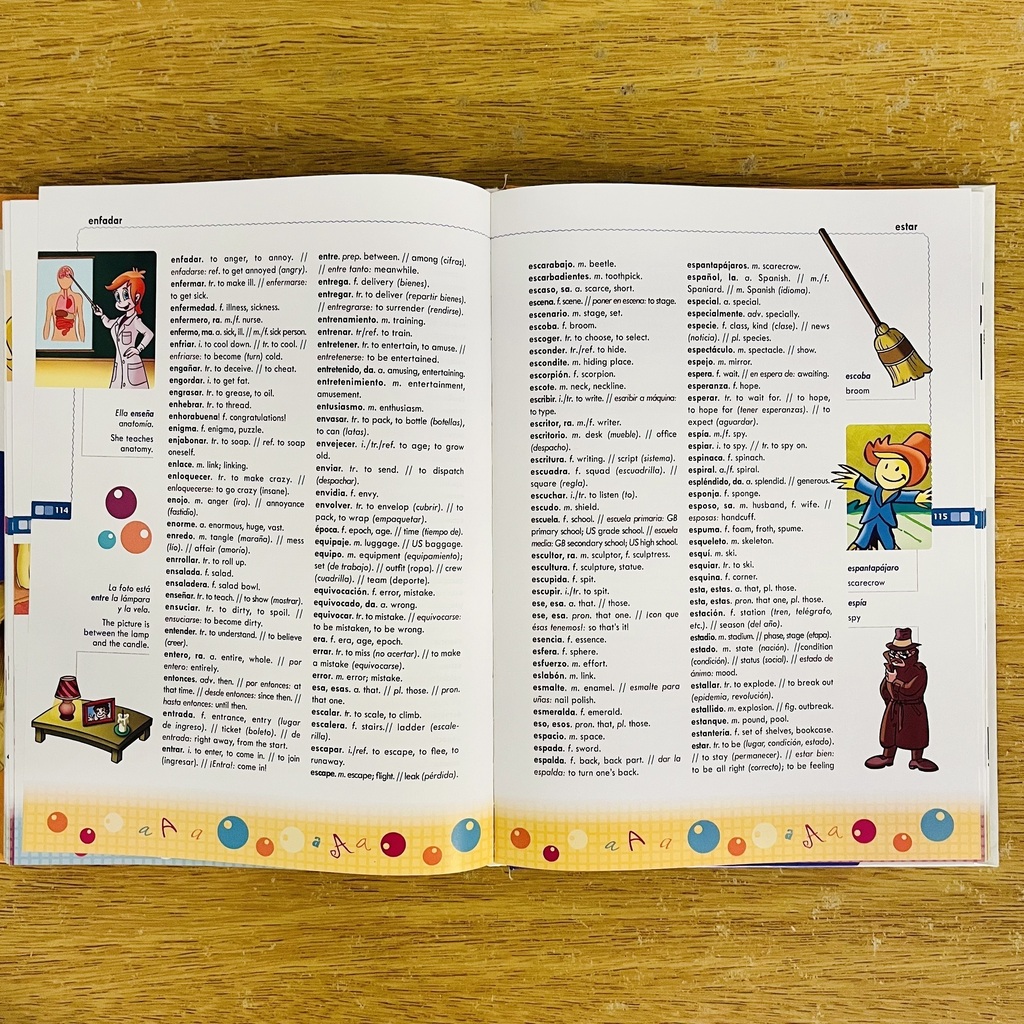 enfadar
enfadar. to anger, to annoy. //
enfadarse: ref. to get annoyed (angry).
enfermar. tr. to make ill. // enfermarse:
to get sick.
enfermedad. f. illness, sickness.
enfermero, ra. m./f. nurse.
enfermo, ma. a. sick, ill. // m./f. sick person.
enfriar. i. to cool down. // tr. to cool. //
enfriarse: to become (turn) cold.
engañar. tr. to deceive. // to cheat.
engordar. i. to get fat.
engrasar. tr. to grease, to oil.
enhebrar. tr. to thread.
enhorabuena! f. congratulations!
enigma. f. enigma, puzzle.
enjabonar. tr. to soap. // ref. to soap
oneself.
enlace. m. link; linking.
enloquecer. tr. to make crazy. //
enloquecerse: to go crazy (insane).
enojo. m. anger (ira). // annoyance
(fastidio).
enorme. a. enormous, huge, vast.
enredo. m. tangle (maraña). // mess
(lío). // affair (amorío).
enrrollar. tr. to roll up.
ensalada. f. salad.
ensaladera. f. salad bowl.
enseñar. tr. to teach. // to show (mostrar).
ensuciar. tr. to dirty, to spoil. //
ensuciarse: to become dirty.
entender. tr. to understand. // to believe
(creer).
entero, ra. a. entire, whole. // por
entero: entirely.
entonces. adv. then. // por entonces: at
that time. // desde entonces: since then. //
hasta entonces: until then.
entrada. f. entrance, entry (lugar
de ingreso). // ticket (boleto). // de
entrada: right away, from the start.
entrar. i. to enter, to come in. // to join
(ingresar). // ¡Entra!: come in!
entre. prep. between. // among (cifras).
// entre tanto: meanwhile.
entrega. f. delivery (bienes).
entregar. tr. to deliver (repartir bienes).
// entregrarse: to surrender (rendirse).
entrenamiento. m. training.
entrenar. tr/ref. to train.
entretener. tr. to entertain, to amuse. //
entretenerse: to be entertained.
entretenido, da. a. amusing, entertaining.
entretenimiento. m. entertainment,
amusement.
entusiasmo. m. enthusiasm.
envasar. tr. to pack, to bottle (botellas),
to can (latas).
envejecer. i./tr./ref. to age; to grow
old.
enviar. tr. to send. // to dispatch
(despachar).
envidia. f. envy.
envolver. tr. to envelop (cubrir). // to
pack, to wrap (empaquetar).
época. f. epoch, age. // time (tiempo de).
equipaje. m. luggage. // US baggage.
equipo. m. equipment (equipamiento);
set (de trabajo). // outfit (ropa). // crew
(cuadrilla). // team (deporte).
equivocación. f. error, mistake.
equivocado, da. a. wrong.
equivocar. tr. to mistake. // equivocarse:
to be mistaken, to be wrong.
era. f. era, age, epoch.
errar. tr. to miss (no acertar). // to make
a mistake (equivocarse).
error. m. error; mistake.
esa, esas. a. that. // pl. those. // pron.
that one.
escalar. tr. to scale, to climb.
escalera. f. stairs.// ladder (escale-
rilla).
escapar. i./ref. to escape, to flee, to
runaway.
escape. m. escape; flight. // leak (pérdida).
Ella enseña
anatomía.
She teaches
anatomy.
114
La foto está
entre la lámpara
y la vela.
The picture is
between the lamp
and the candle.
a A a a A a
estar
escarabajo. m. beetle.
escarbadientes. m. toothpick.
escaso, sa. a. scarce, short.
escena. f. scene. // poner en escena: to stage.
escenario. m. stage, set.
escoba. f. broom.
escoger. tr. to choose, to select.
esconder. tr./ref. to hide.
escondite. m. hiding place.
escorpión. f. scorpion.
escote. m. neck, neckline.
escribir. i./tr. to write. // escribir a máquina:
to type.
escritor, ra. m./f. writer.
escritorio. m. desk (mueble). // office
(despacho).
escritura. f. writing. // script (sistema).
escuadra. f. squad (escuadrilla). //
square (regla).
escuchar. i./tr. to listen (to).
escudo. m. shield.
escuela. f. school. // escuela primaria: GB
primary school; US grade school. // escuela
media: GB secondary school; US high school.
escultor, ra. m. sculptor, f. sculptress.
escultura. f. sculpture, statue.
escupida. f. spit.
escupir. i./tr. to spit.
ese, esa. a. that. // those.
ese, esa. pron. that one. // ¡con que
ésas tenemos!: so that's it!
esencia. f. essence.
esfera. f. sphere.
esfuerzo. m. effort.
eslabón. m. link.
esmalte. m. enamel. // esmalte para
uñas: nail polish.
esmeralda. f. emerald.
eso, esos. pron. that, pl. those.
espacio. m. space.
espada. f. sword.
espalda. f. back, back part. // dar la
espalda: to turn one's back.
espantapájaros. m. scarecrow.
español, la. a. Spanish. // m./f.
Spaniard. // m. Spanish (idioma).
especial. a. special.
especialmente. adv. specially.
especie. f. class, kind (clase). // news
(noticia). // pl. species.
espectáculo. m. spectacle. // show.
espejo. m. mirror.
espera. f. wait. // en espera de: awaiting.
esperanza. f. hope.
esperar. tr. to wait for. // to hope,
to hope for (tener esperanzas). // to
expect (aguardar).
espía. m./f. spy.
espiar. i. to spy. // tr. to spy on.
espinaca. f. spinach.
espiral. a./f. spiral.
espléndido, da. a. splendid. // generous.
esponja. f. sponge.
esposo, sa. m. husband, f. wife. //
esposas: handcuff.
espuma. f. foam, froth, spume.
esqueleto. m. skeleton.
esquí. m. ski.
esquiar. tr. to ski.
esquina. f. corner.
esta, estas. a. that, pl. those.
esta, estas. pron. that one, pl. those.
estación. f. station (tren, telégrafo,
etc.). // season (del año).
estadio. m. stadium. // phase, stage (etapa).
estado. m. state (nación). //condition
(condición). // status (social). // estado de
ánimo: mood.
estallar. tr. to explode. // to break out
(epidemia, revolución).
estallido. m. explosion. // fig. outbreak.
estanque. m. pound, pool.
estantería. f. set of shelves, bookcase.
estar. tr. to be (lugar, condición, estado).
// to stay (permanecer). // estar bien:
to be all right (correcto); to be feeling
escoba
broom
115
espantapájaro
scarecrow
espía
spy
a A a a A a